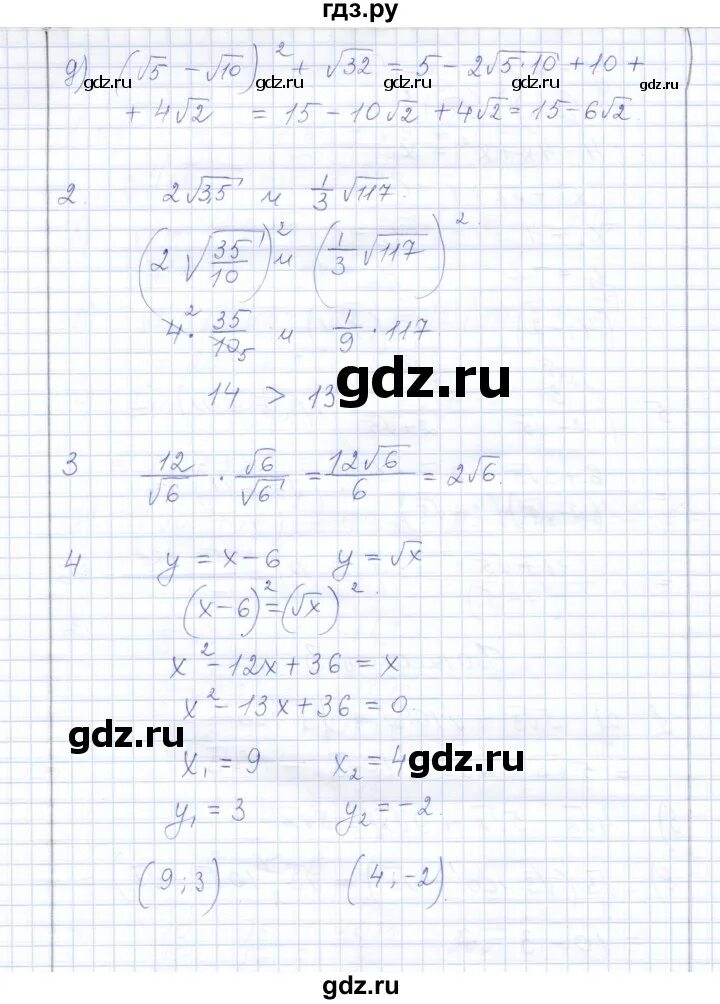 гдз.ру
д) (√5 − √10)² + √32 = 5 − 2√5·10 + 10 +
gdz.ru gdz.ru gdz.ru gdz.ru
+ 4√2 = 15 − 10√2 + 4√2 = 15 − 6√2.
2. 2√3,5 и 1/3 √117.
(2√35/10)² и (1/3 √117)².
4² · 35/10 5 и 1/9 · 117
gdz.ru
14 > 13
3 12/√6 · √6/√6 = 12√6/6 = 2√6.
4 y = x − 6 y = √x
(x − 6)² = (√x)².
x² − 12x + 36 = x
x² − 13x + 36 = 0.
gdz.ru
x₁ = 9 x₂ = 4
gdz.ru
y₁ = 3 y₂ = −2.
(9; 3) (4; −2).
gdz.ru